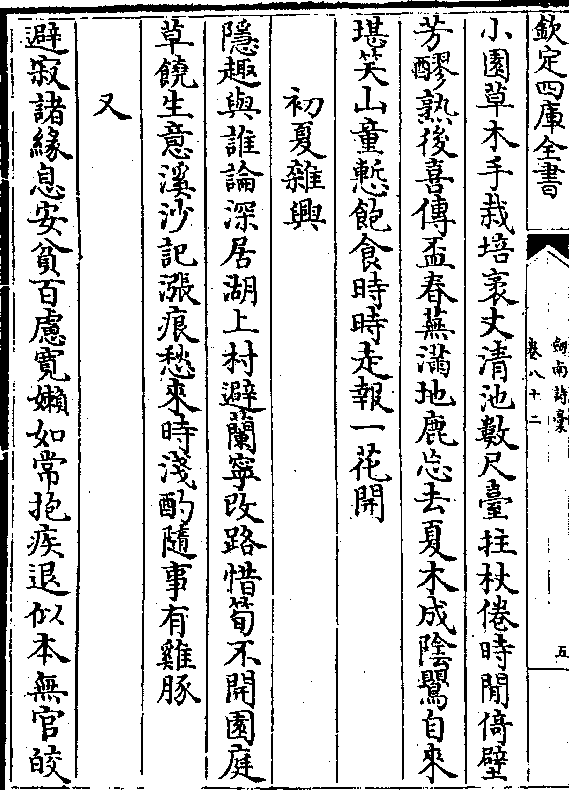 欽定四庫全書
劍南詩稾
卷八十二
五
小園草木手栽培袤丈清池數尺臺拄杖倦時閒倚壁
芳醪熟後喜傳盃春蕪滿地鹿忘去夏木成陰鶯自來
堪笑山童慙飽食時時走報一花開
初夏雜興
隱趣與誰論深居湖上村避蘭寧改路惜筍不開園庭
草饒生意溪沙記漲痕愁來時淺酌隨事有雞豚
又
避寂諸緣息安貧百慮寛嬾如常抱疾退似本無官皎